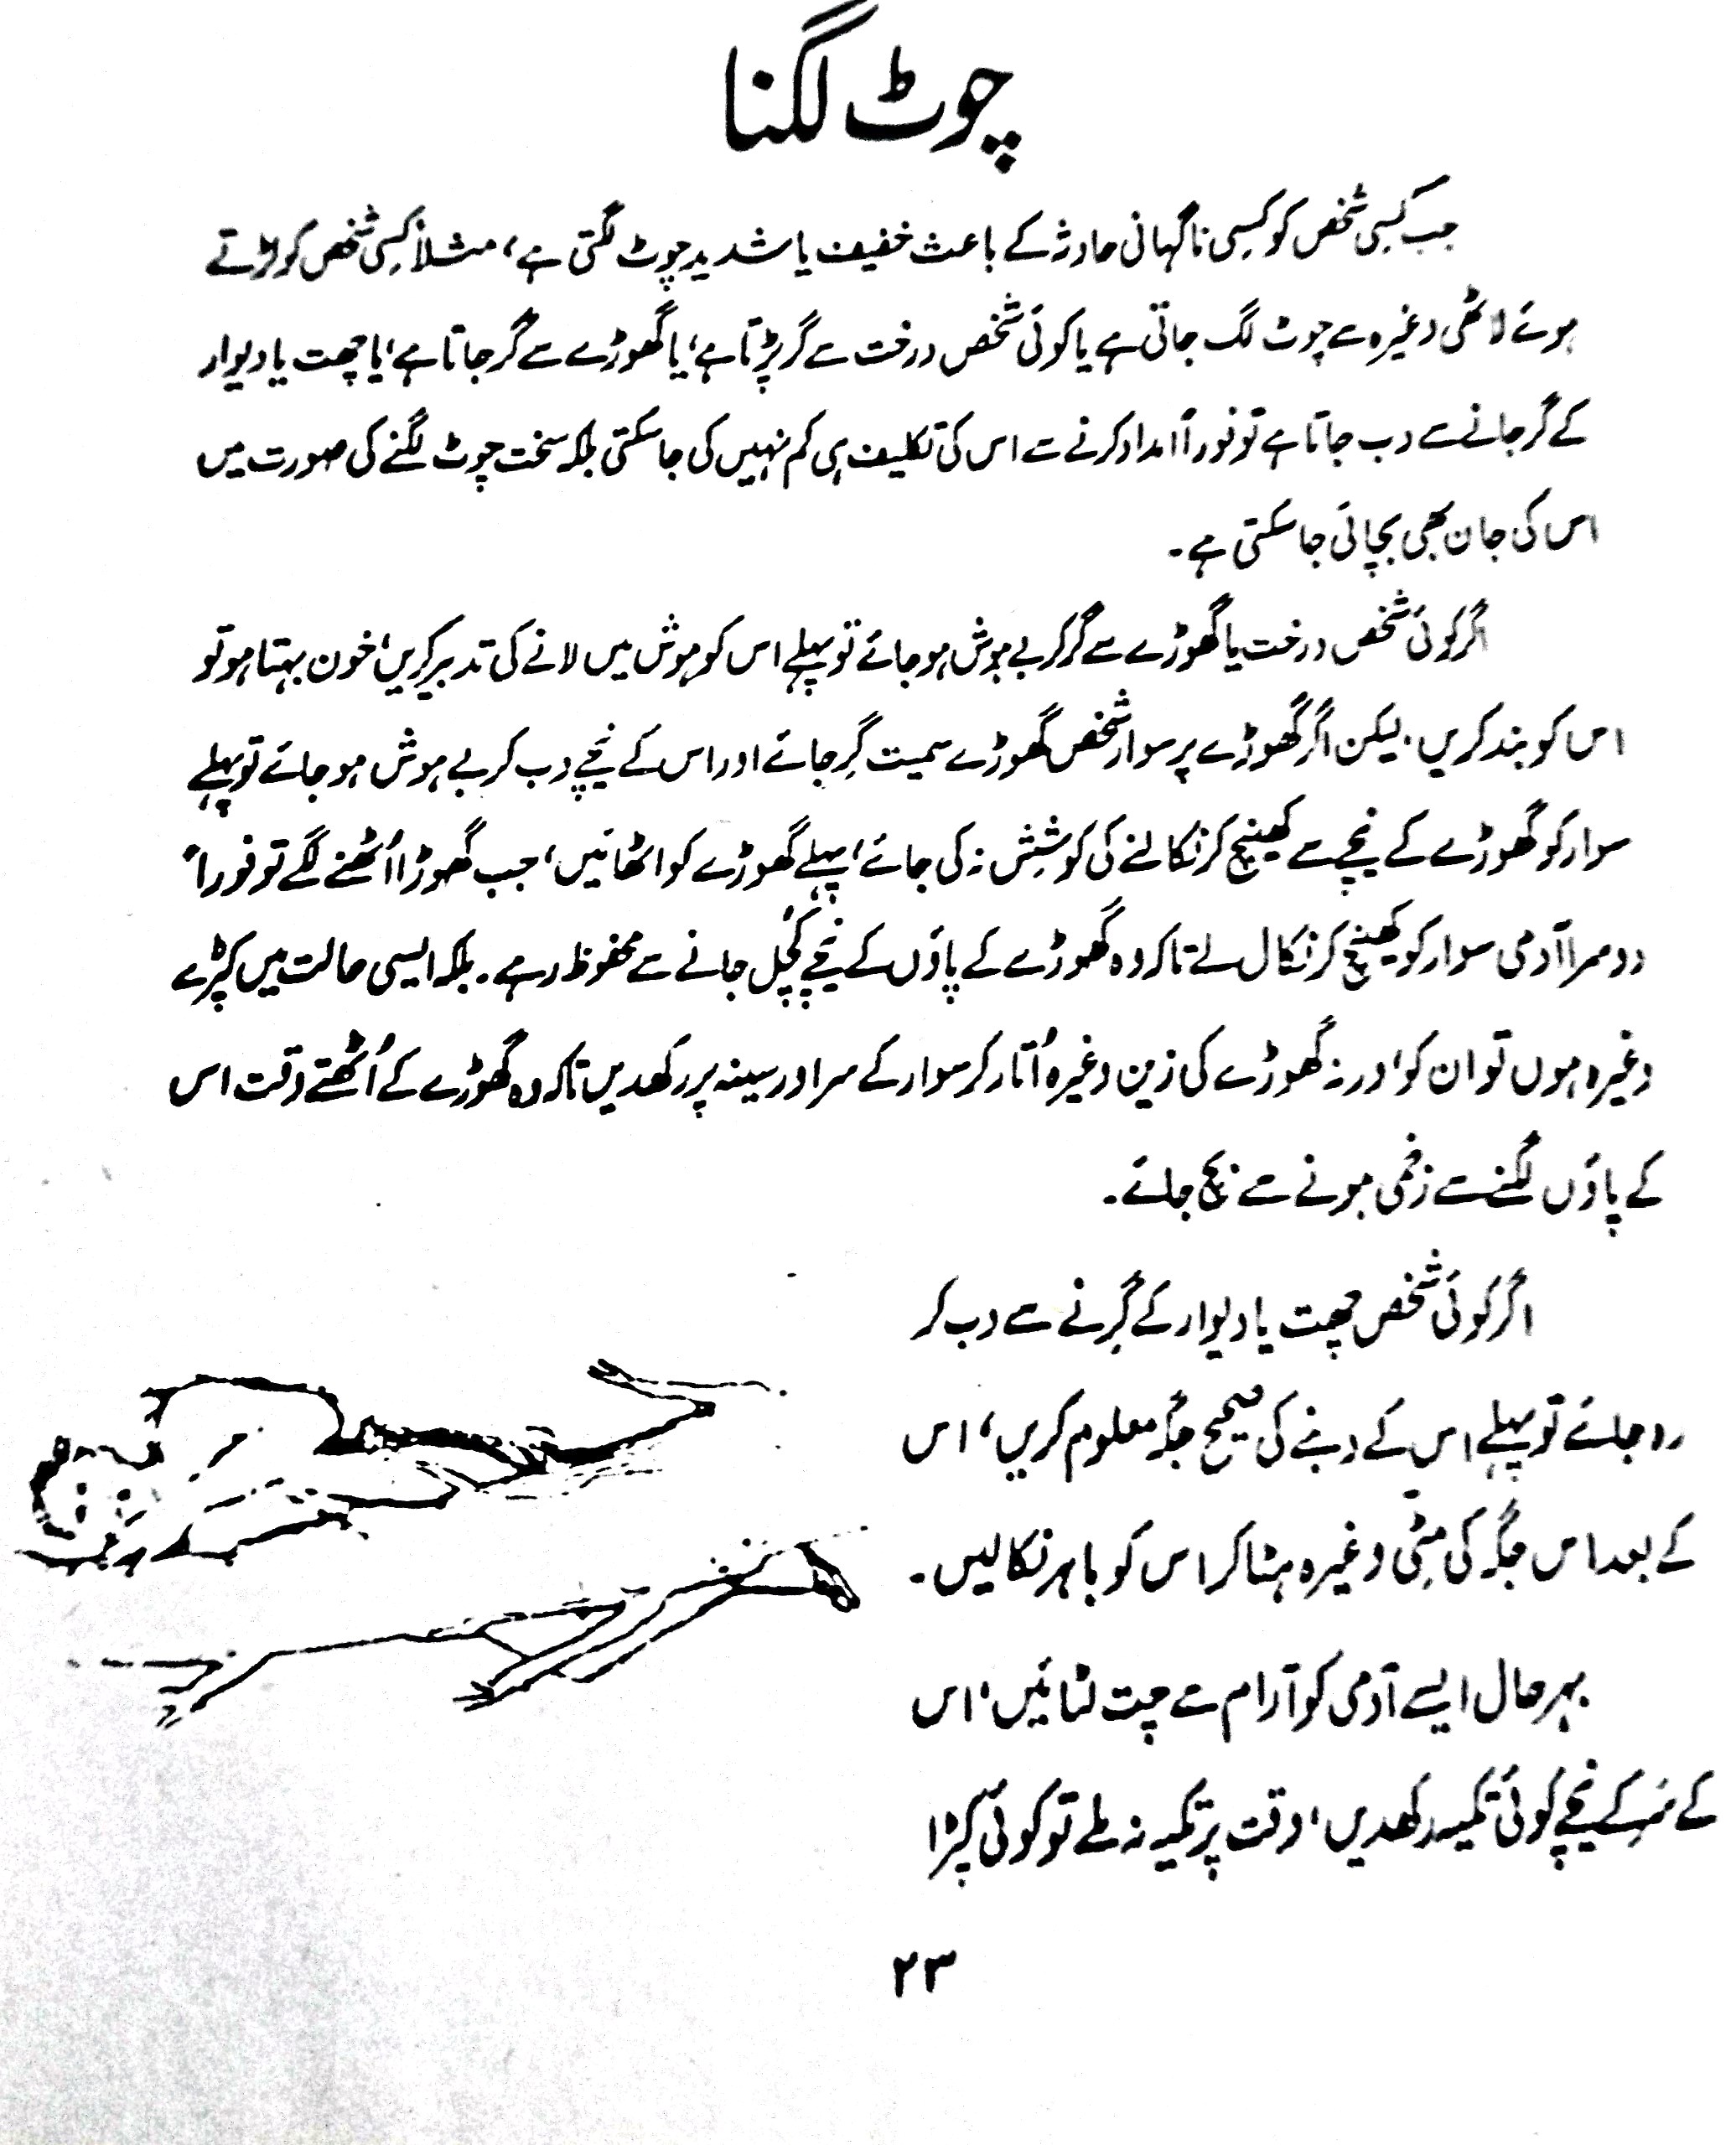 چوٹ لگنا
جب کسی شخص کو کسی ناگہانی حادثہ کے باعث خفیف یا شدید چوٹ لگتی ہے، مثلاً کسی شخص کو لڑتے
ہوئے لاٹھی وغیرہ سے چوٹ لگ جاتی ہے یا کوئی شخص درخت سے گر پڑتا ہے، یا گھوڑے سے گر جاتا ہے، یا چھت یا دیوار
کے گر جانے سے دب جاتا ہے تو فوراً امداد کرنے سے اس کی تکلیف ہی کم نہیں کی جا سکتی بلکہ سخت چوٹ لگنے کی صورت میں
اس کی جان بھی بچائی جا سکتی ہے۔
اگر کوئی شخص درخت یا گھوڑے سے گر کر بے ہوش ہو جائے تو پہلے اس کو ہوش میں لانے کی تدبیر کریں، خون بہتا ہو تو
اس کو بند کریں، لیکن اگر گھوڑے پر سوار شخص گھوڑے سمیت گِر جائے اور اس کے نیچے دب کر بے ہوش ہو جائے تو پہلے
سوار کو گھوڑے کے نیچے سے کھینچ کر نکالنے کی کوشش نہ کی جائے، پہلے گھوڑے کو اٹھائیں، جب گھوڑا اُٹھنے لگے تو فوراً
دوسرا آدمی سوار کو کھینچ کر نکال لے تاکہ وہ گھوڑے کے پاؤں کے نیچے کُچل جانے سے محفوظ رہے۔ بلکہ ایسی حالت میں کپڑے
وغیرہ ہوں تو ان کو، ورنہ گھوڑے کی زین وغیرہ اُتار کر سوار کے سر اور سینہ پر رکھدیں تاکہ وہ گھوڑے کے اُٹھتے وقت اس
کے پاؤں لگنے سے زخمی ہونے سے بچ جائے۔
اگر کوئی شخص چھت یا دیوار کے گِرنے سے دب کر
رہ جائے تو پہلے اس کے دبنے کی صحیح جگہ معلوم کریں، اس
کے بعد اس جگہ کی مٹی وغیرہ ہٹا کر اس کو باہر نکالیں۔
بہر حال ایسے آدمی کو آرام سے چت لٹائیں، اس
کے سَر کے نیچے کوئی تکیہ رکھدیں، وقت پر تکیہ نہ ملے تو کوئی کپڑا
۲۳